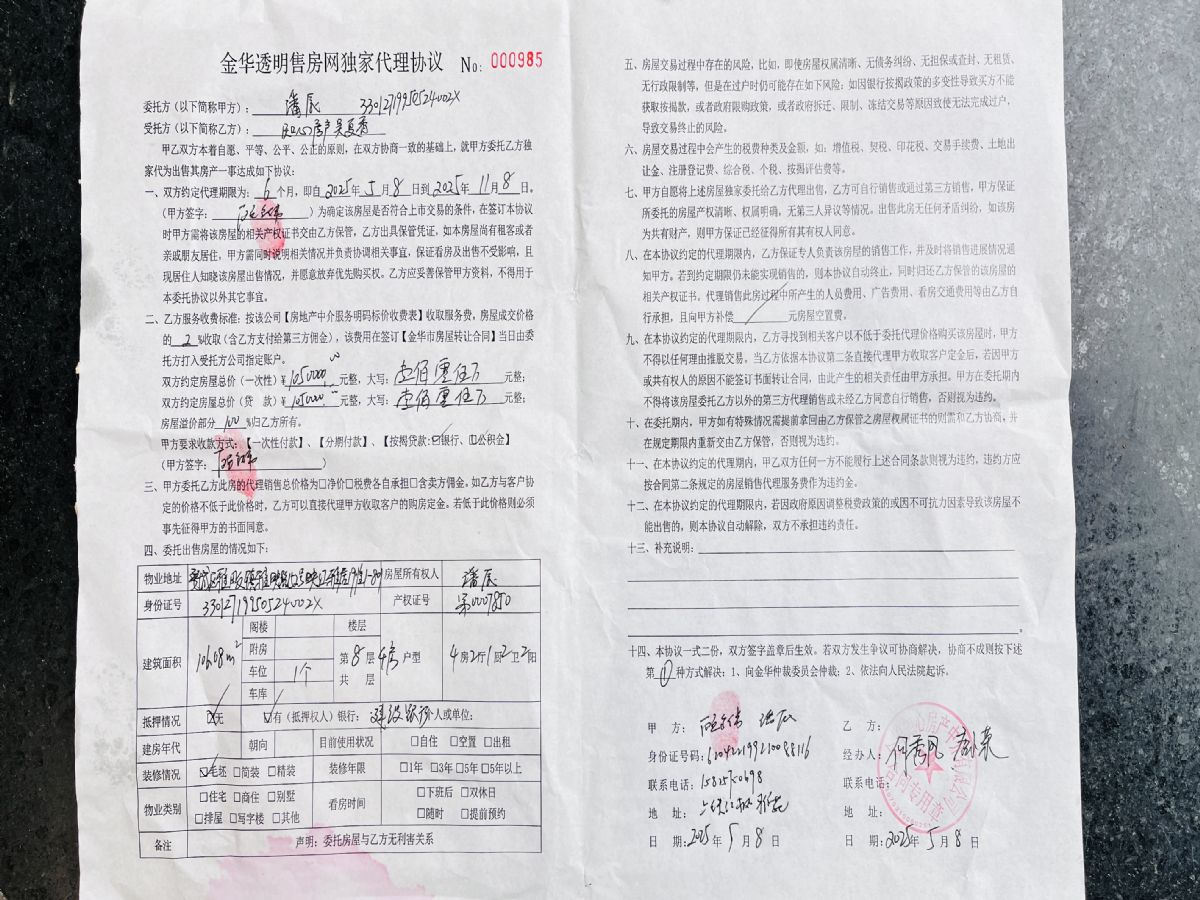 金华透明售房网独家代理协议 No: 000985
委托方（以下简称甲方）：潘辰 33012719950524002X
受托方（以下简称乙方）：
甲乙双方本着自愿、平等、公平、公正的原则，在双方协商一致的基础上，就甲方委托乙方独
家代为出售其房产一事达成如下协议：
一、双方约定代理期限为：6个月，即自2025年5月8日到2025年11月8日。
（甲方签字：）为确定该房屋是否符合上市交易的条件，在签订本协议
时甲方需将该房屋的相关产权证书交由乙方保管，乙方出具保管凭证。如本房屋尚有租客或者
亲戚朋友居住，甲方需同时说明相关情况并负责协调相关事宜，保证看房及出售不受影响，且
现居住人知晓该房屋出售情况，并愿意放弃优先购买权。乙方应妥善保管甲方资料，不得用于
本委托协议以外其它事宜。
二、乙方服务收费标准：按该公司【房地产中介服务明码标价收费表】收取服务费，房屋成交价格
的2%收取（含乙方支付给第三方佣金），该费用在签订【金华市房屋转让合同】当日由委
托方打入受托方公司指定账户。
双方约定房屋总价（一次性）¥1050000元整，大写：壹佰零伍万元整；
双方约定房屋总价（贷 款）¥105000元整，大写：壹佰零伍万元整；
房屋溢价部分100%归乙方所有。
甲方要求收款方式：【一次性付款】、【分期付款】、【按揭贷款:☑银行、☑公积金】
（甲方签字：）
三、甲方委托乙方此房的代理销售总价格为□净价□税费各自承担□含卖方佣金。如乙方与客户协
定的价格不低于此价格时，乙方可以直接代理甲方收取客户的购房定金。若低于此价格则必须
事先征得甲方的书面同意。
四、委托出售房屋的情况如下：
物业地址 房屋所有权人 潘辰
身份证号 33012719950524002X 产权证号 第0007850
建筑面积 106.08m² 阁楼 楼层
附房 第8层 户型 4房2厅1厨2卫2阳
车位 1个 共 层
车库
抵押情况 ☑无 ☑有（抵押权人）银行：建设银行个人或单位：
建房年代 朝向 目前使用状况 □自住 □空置 □出租
装修情况 ☑毛坯 □简装 □精装 装修年限 □1年 □3年 □5年 □5年以上
物业类别 □住宅 □商住 □别墅 看房时间 □下班后 □双休日
□排屋 □写字楼 □其他 □随时 □提前预约
备注 声明：委托房屋与乙方无利害关系
五、房屋交易过程中存在的风险，比如，即使房屋权属清晰、无债务纠纷、无担保或查封、无租赁、
无行政限制等，但是在过户时仍可能存在如下风险：如因银行按揭政策的多变性导致买方不能
获取按揭款，或者政府限购政策，或者政府拆迁、限制、冻结交易等原因致使无法完成过户，
导致交易终止的风险。
六、房屋交易过程中会产生的税费种类及金额，如：增值税、契税、印花税、交易手续费、土地出
让金、注册登记费、综合税、个税、按揭评估费等。
七、甲方自愿将上述房屋独家委托给乙方代理出售，乙方可自行销售或通过第三方销售，甲方保证
所委托的房屋产权清晰、权属明确，无第三人异议等情况。出售此房无任何矛盾纠纷，如该房
为共有财产，则甲方保证已经征得所有其有权人同意。
八、在本协议约定的代理期限内，乙方保证专人负责该房屋的销售工作，并及时将销售进展情况通
知甲方。若到约定期限仍未能实现销售的，则本协议自动终止，同时归还乙方保管的该房屋的
相关产权证书。代理销售此房过程中所产生的人员费用、广告费用、看房交通费用等由乙方自
行承担，且向甲方补偿 / 元房屋空置费。
九、在本协议约定的代理期限内，乙方寻找到相关客户以不低于委托代理价格购买该房屋时，甲方
不得以任何理由推脱交易。当乙方依据本协议第二条直接代理甲方收取客户定金后，若因甲方
或共有权人的原因不能签订书面转让合同，由此产生的相关责任由甲方承担。甲方在委托期内
不得将该房屋委托乙方以外的第三方代理销售或未经乙方同意自行销售，否则视为违约。
十、在委托期内，甲方如有特殊情况需提前拿回由乙方保管之房屋权属证书的则需和乙方协商，并
在规定期限内重新交由乙方保管，否则视为违约。
十一、在本协议约定的代理期内，甲乙双方任何一方不能履行上述合同条款则视为违约，违约方应
按合同第二条规定的房屋销售代理服务费作为违约金。
十二、在本协议约定的代理期限内，若因政府原因调整税费政策的或因不可抗力因素导致该房屋不
能出售的，则本协议自动解除，双方不承担违约责任。
十三、补充说明：
十四、本协议一式二份，双方签字盖章后生效。若双方发生争议可协商解决，协商不成则按下述
第①种方式解决：1、向金华仲裁委员会仲裁；2、依法向人民法院起诉。
甲 方： 乙 方：
身份证号码： 经办人：
联系电话： 联系电话：
地 址： 地 址：
日 期：2025年5月8日 日 期：2025年5月8日
合同专用章